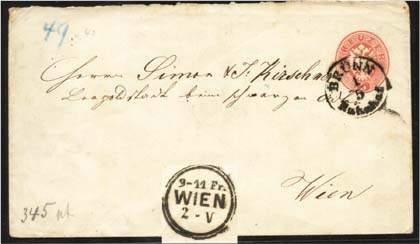 49
KREUZER
BRÜNN
Bahnhof
Herrn Simon & J. Kirsch
Leopoldstadt beim schwarzen
Wien
9-11 Fr.
WIEN
2-V
345